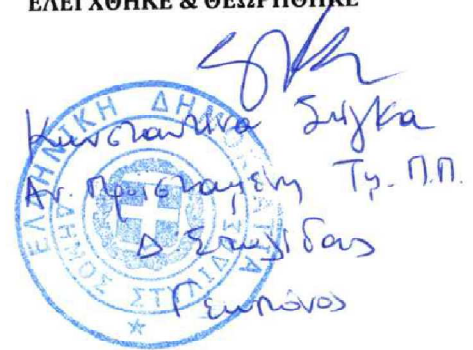 ΕΛΕΓΧΘΗΚΕ & ΘΕΩΡΗΘΗΚΕ
Κωνσταντίνα Σύγκα
Αν. Προϊσταμένη Τμ. Π.Π.
Δ. Στυλίδας
Γεωπόνος
ΕΛΛΗΝΙΚΗ ΔΗΜΟΚΡΑΤΙΑ
ΔΗΜΟΣ ΣΤΥΛΙΔΑΣ